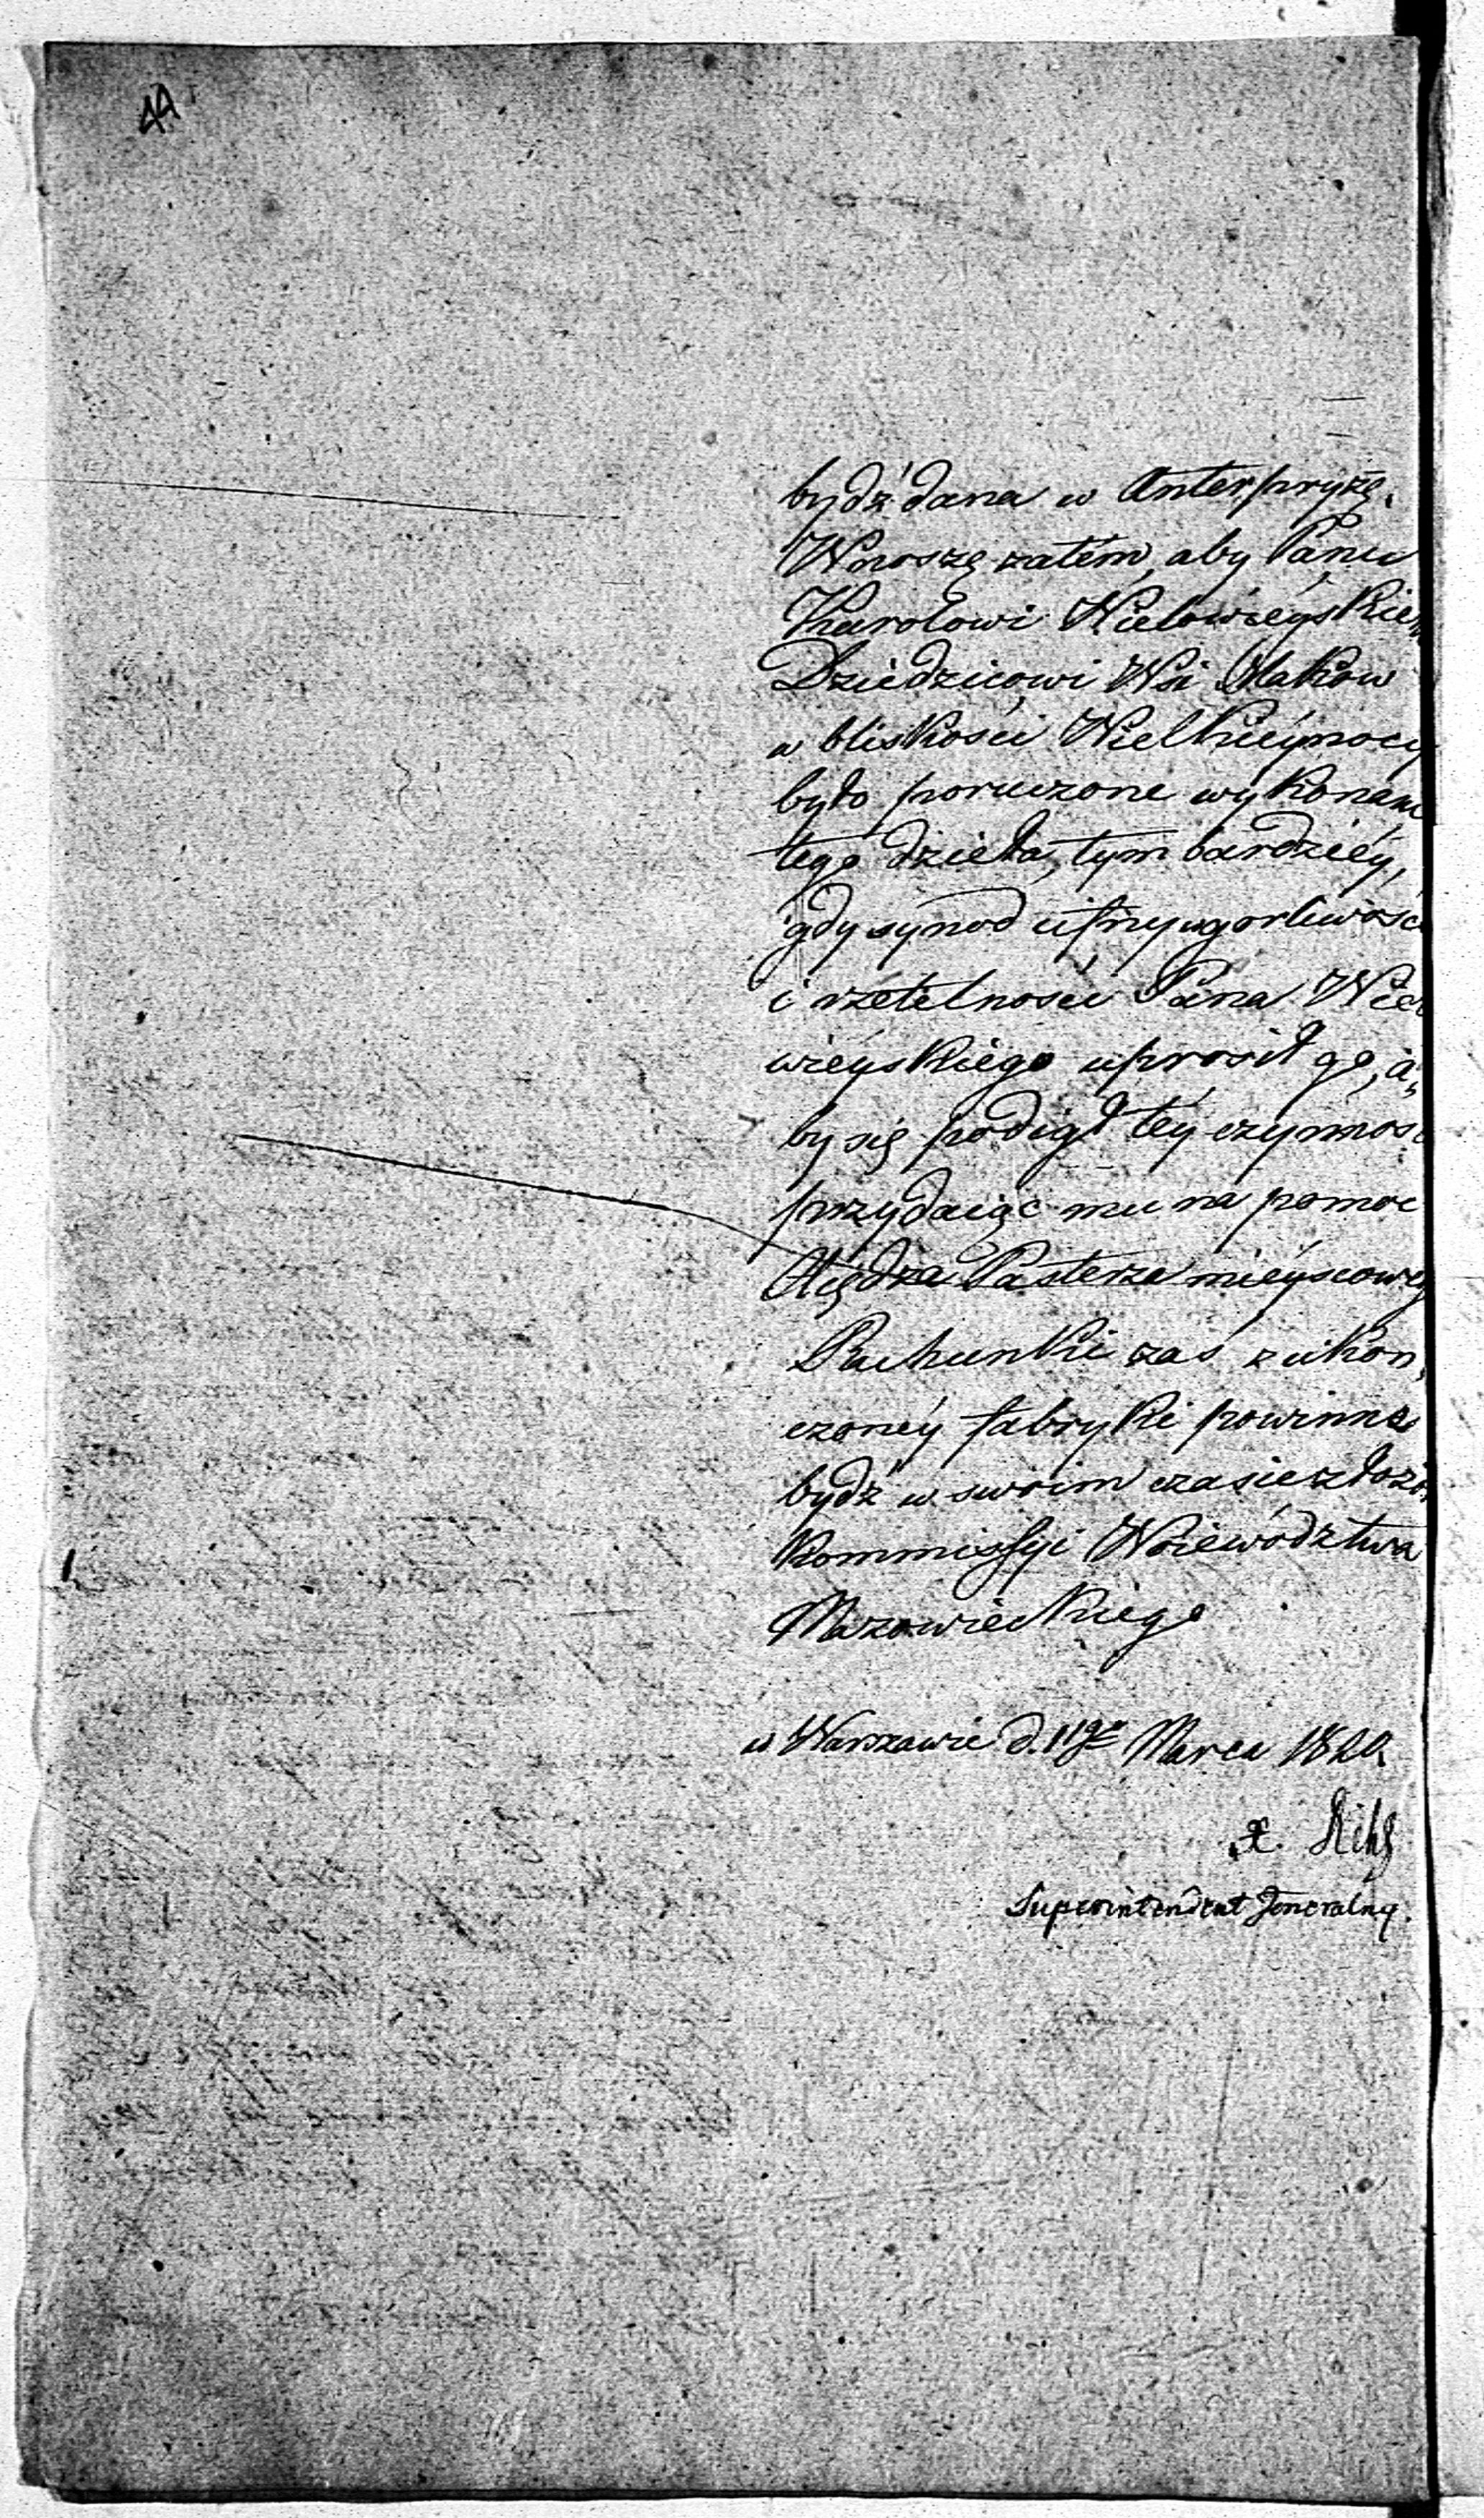 44
bydź dana w Anterpryzę.
Wnoszę zatém, aby Panu
Karolowi Wielowieyskiem
Dziedzicowi Wsi Maków
w bliskości Wielkiéynocy
było poruczone wykonani
tego dzieła, tym bardziéy,
gdy synod ufny w gorliwośc
i rzetelności Pana Wiel
wieyskiego uprosił go, a,
by się podiął téy czynnośc
przydaiąc mu na pomoc
Xiędza Pasterza miéyscoweg
Rachunki zaś z ukoń,
czonéy fabryki powinne
bydź w swoim czasie złożon
Kommissyi Woiewództwa
Mazowieckiego
w Warszawie d. 11go Marca 1820.
x.
Superintendent Jeneralny.